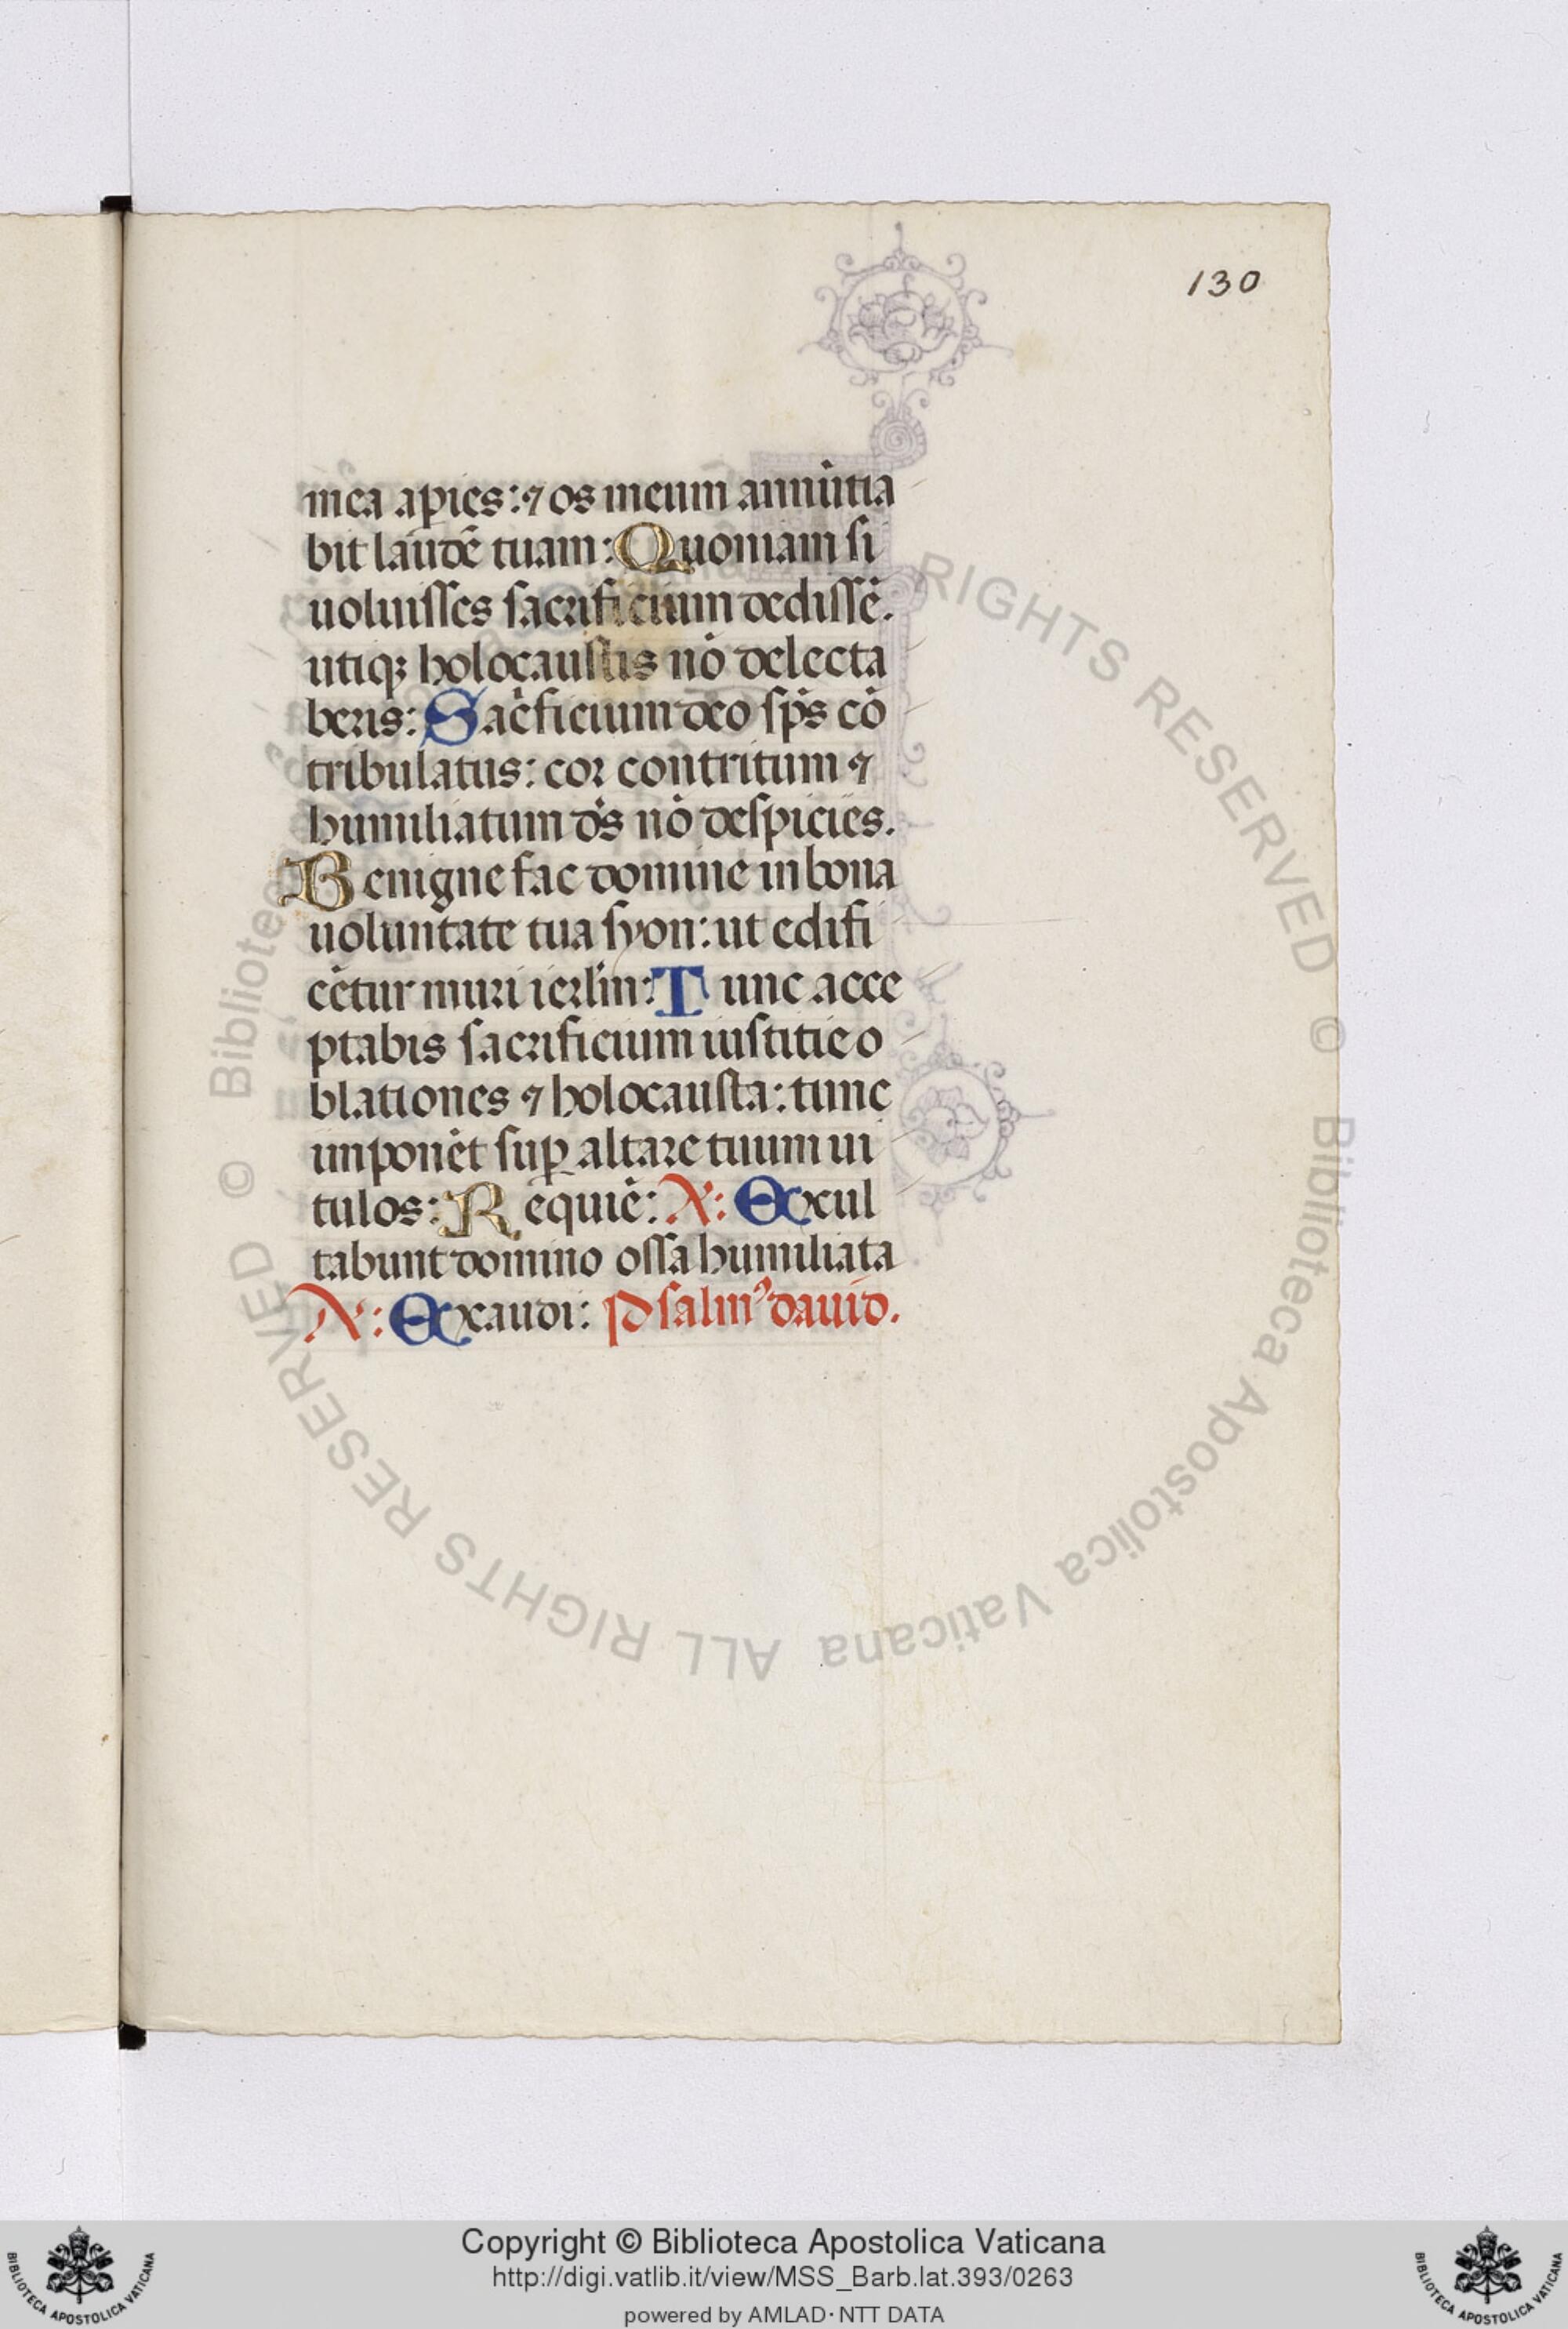 130
mea ap̲ies: ⁊ os meum annũtia
bit laudē tuam: Quoniam si
uoluisses sacrificium dedissē.
utiqꝫ holocaustis nō delecta
beris: Sacͥficium deo sp̄s cō
tribulatus: cor contritum ⁊
humiliatum d̄s nō despicies.
Benigne fac domine in bona
uoluntate tua syon: ut edifi
cētur muri ierlm̄: Tunc acce
ptabis sacrificium iustitie o
blationes ⁊ holocausta: tunc
imponēt suꝑ altare tuum ui
tulos: Requiē: A᷒: Exul
tabunt domino ossa humiliata
A᷒: Exaudi: Psalmꝰ dauid.
RIGHTS RESERVED © Biblioteca Apostolica Vaticana ALL RIGHTS RESERVED © Biblioteca
BIBLIOTECA APOSTOLICA VATICANA
Copyright © Biblioteca Apostolica Vaticana
http://digi.vatlib.it/view/MSS_Barb.lat.393/0263
powered by AMLAD·NTT DATA
BIBLIOTECA APOSTOLICA VATICANA